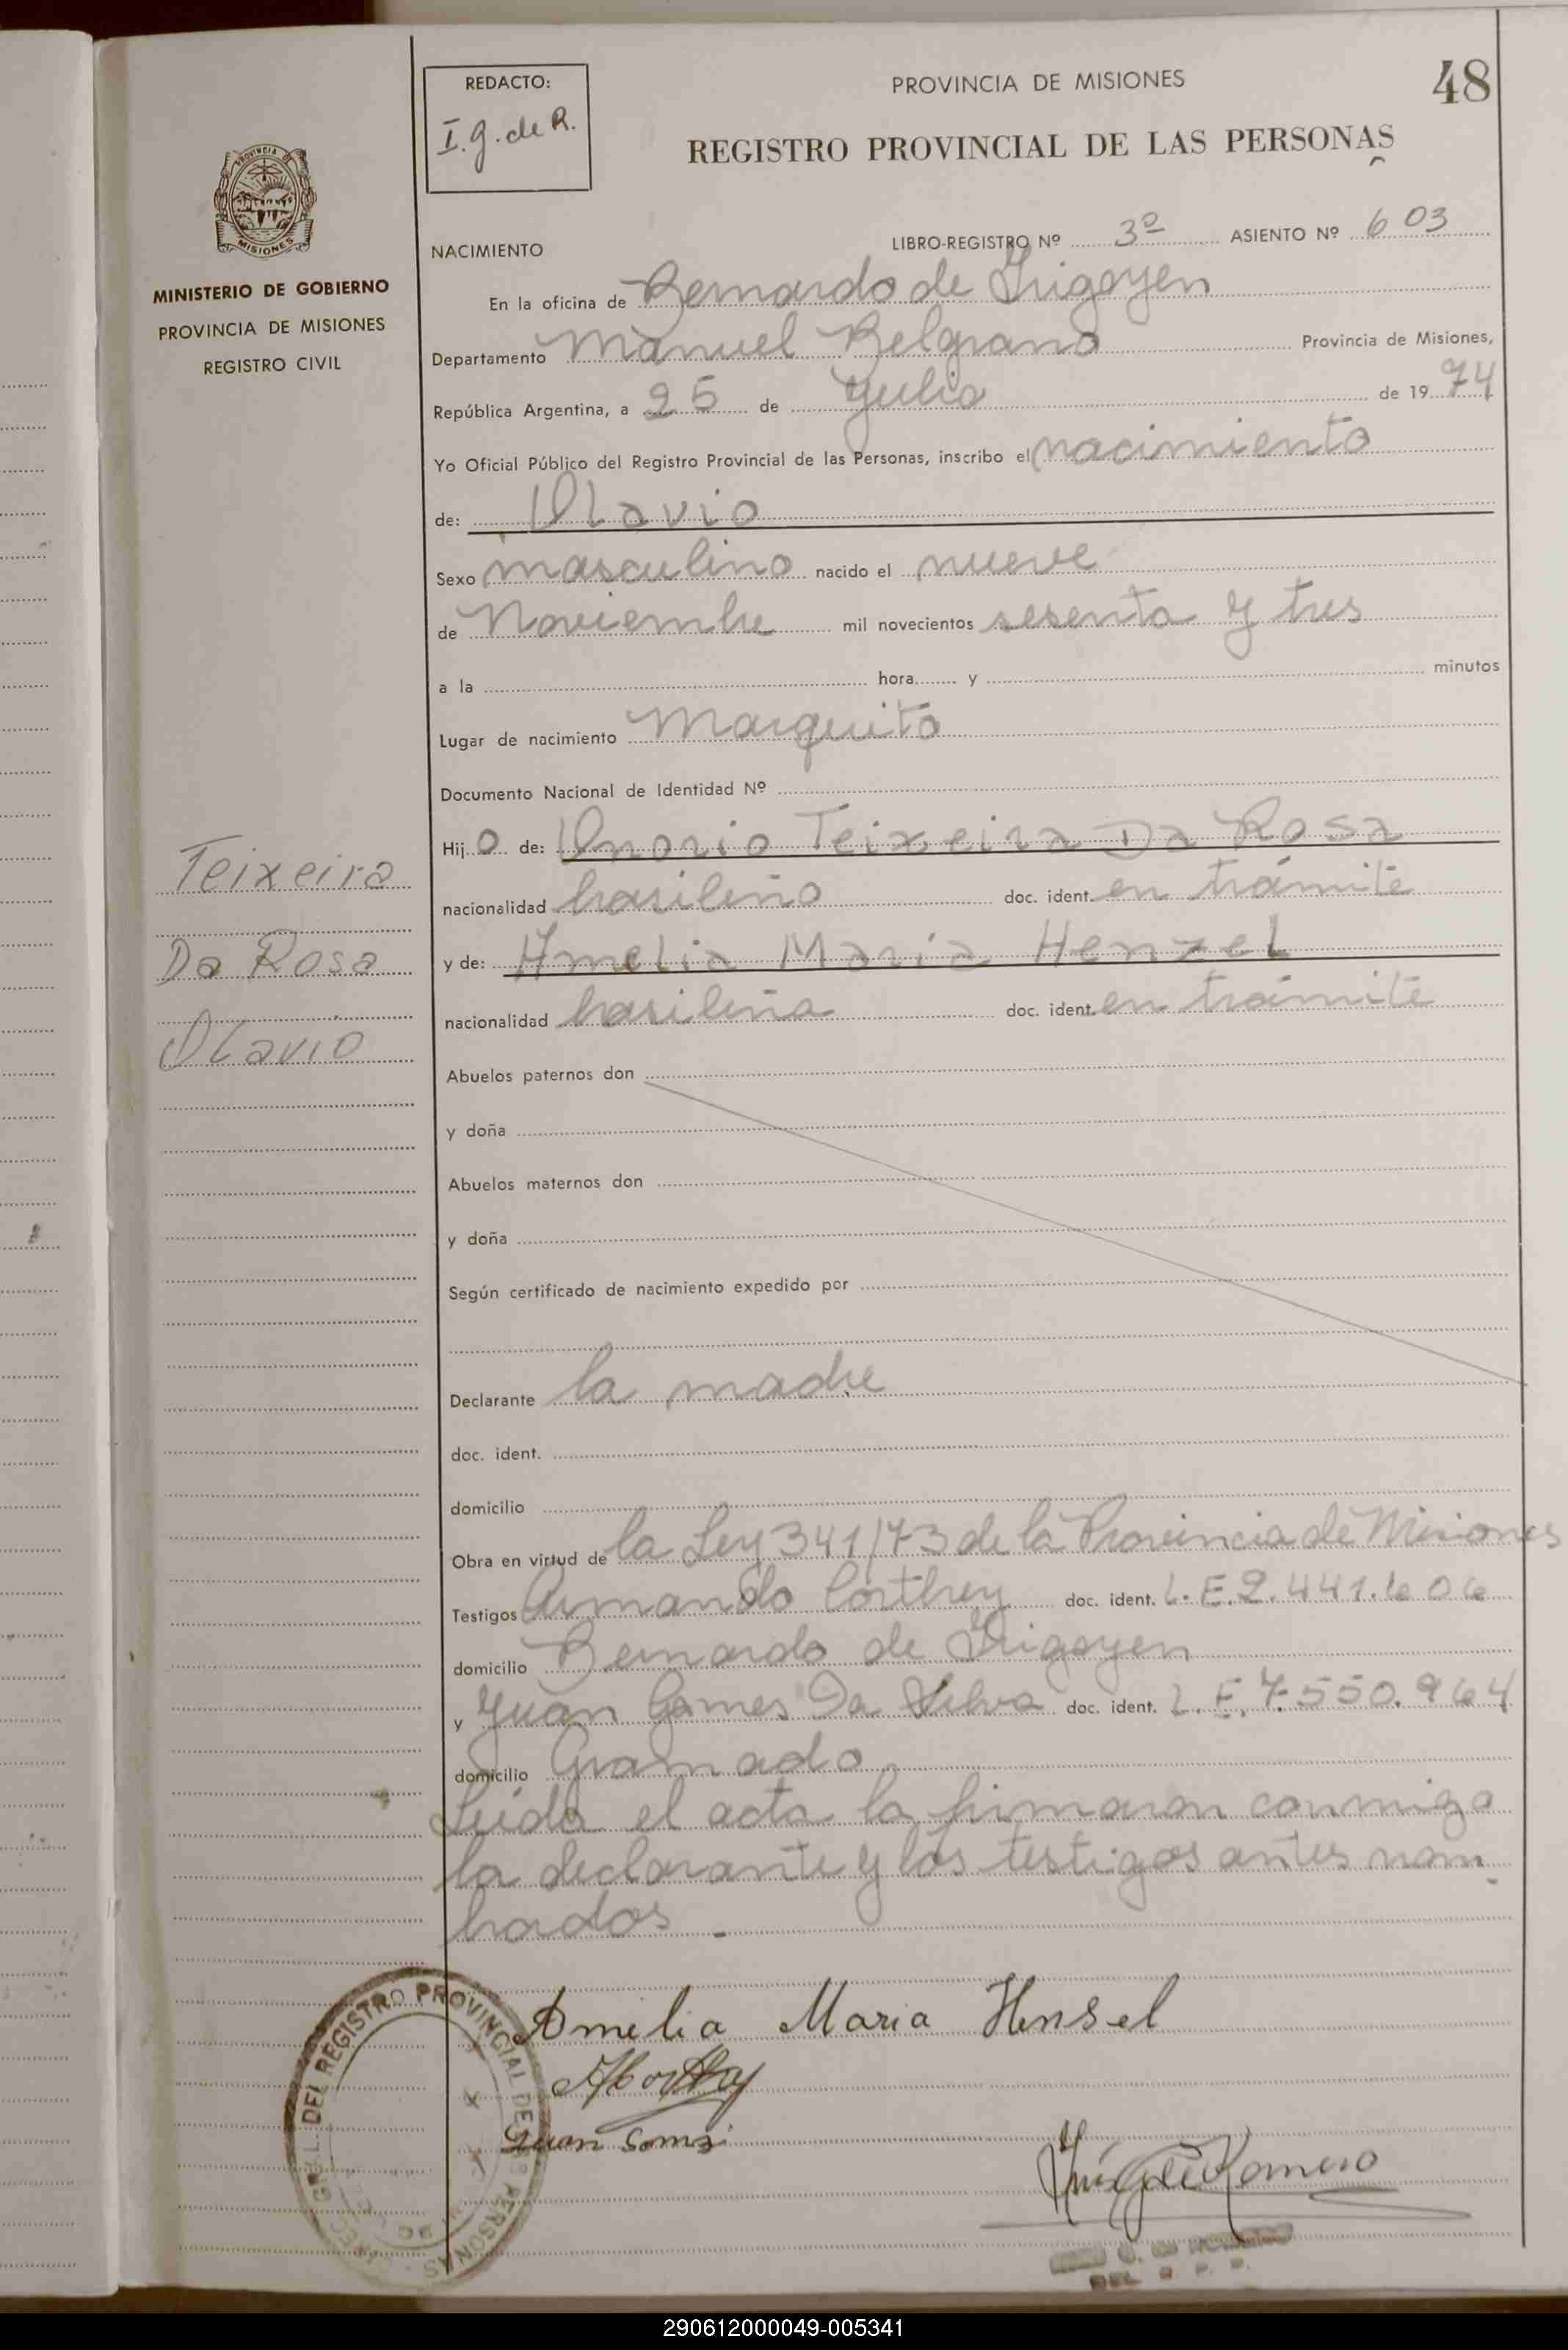 REDACTO:
I. g. de R.
PROVINCIA DE MISIONES
48
REGISTRO PROVINCIAL DE LAS PERSONAS
PROVINCIA DE
MISIONES
MINISTERIO DE GOBIERNO
PROVINCIA DE MISIONES
REGISTRO CIVIL
NACIMIENTO
LIBRO-REGISTRO Nº 3º ASIENTO Nº 603
En la oficina de Bernardo de Irigoyen
Departamento Manuel Belgrano Provincia de Misiones,
República Argentina, a 25 de Julio de 1974
Yo Oficial Público del Registro Provincial de las Personas, inscribo el nacimiento
de: Olavio
Sexo masculino nacido el nueve
de Noviembre mil novecientos sesenta y tres
a la hora y minutos
Lugar de nacimiento Marquito
Documento Nacional de Identidad Nº
Hijo de: Onorio Teixeira Da Rosa
Teixeira
nacionalidad brasileño doc. ident. en trámite
Da Rosa
y de: Amelia Maria Henzel
nacionalidad brasileña doc. ident. en trámite
Olavio
Abuelos paternos don
y doña
Abuelos maternos don
y doña
Según certificado de nacimiento expedido por
Declarante la madre
doc. ident.
domicilio
Obra en virtud de la Ley 341/73 de la Provincia de Misiones
Testigos Armando Corthey doc. ident. L.E. 2.441.606
domicilio Bernardo de Irigoyen
y Juan Gomes Da Silva doc. ident. L.E. 7.550.964
domicilio Gramado
Leída el acta la firmaron conmigo
la declarante y los testigos antes nom
brados.-
Amelia Maria Hensel
Juan Goms
DEL REGISTRO PROVINCIAL DE LAS PERSONAS
DEL R. P. P.
290612000049-005341